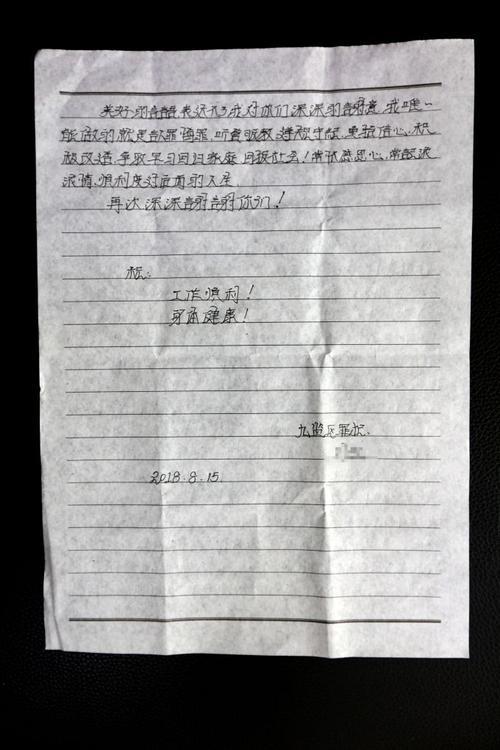 美好的言语表达不了我对你们深深的谢意,我唯一
能做的就是认罪悔罪,听管服教,遵规守纪,更拾信心,积
极改造,争取早日回归家庭,回报社会!常怀感恩心,常叙滚
滚情,顺利度过后面的人生
再次深深谢谢你们!
祝:
工作顺利!
身体健康!
九监区罪犯:
2018.8.15.